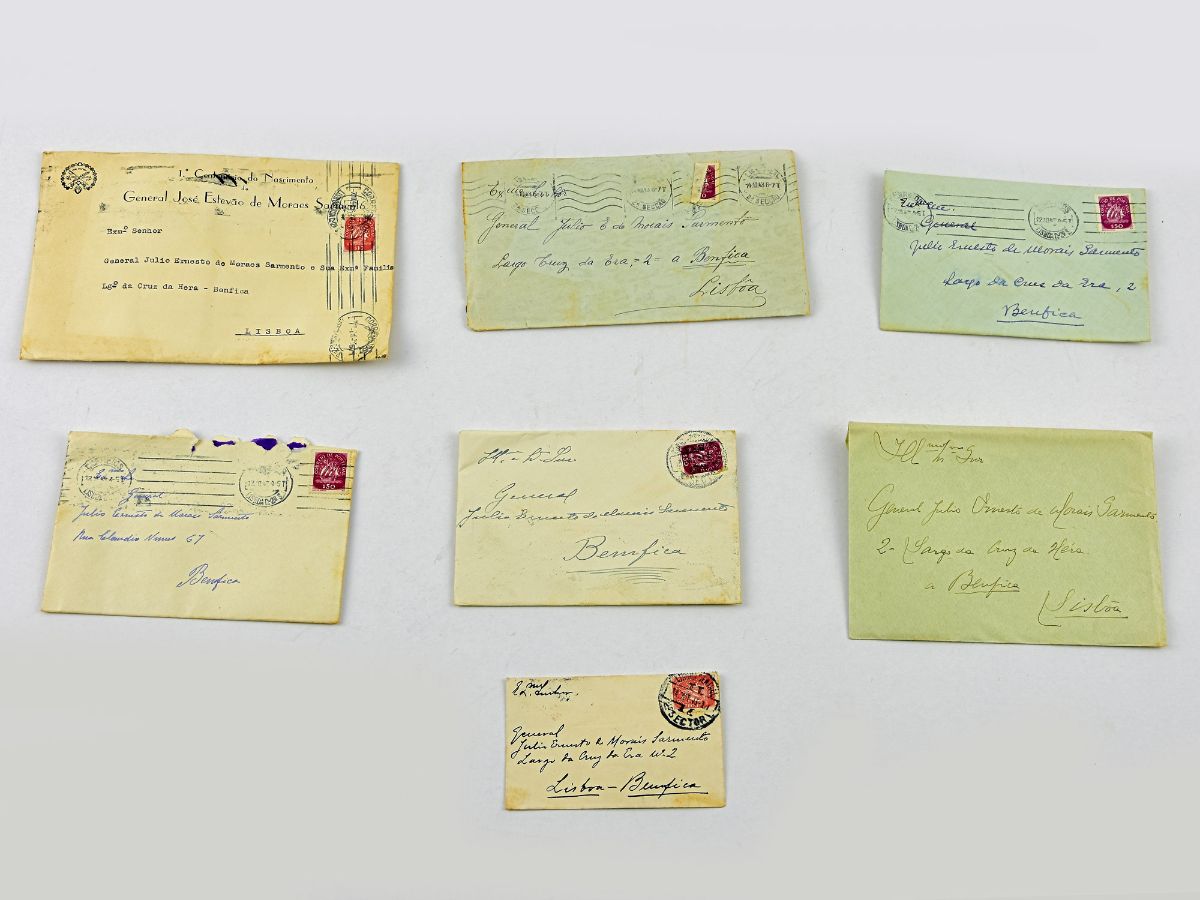 1º Centenário do Nascimento
do
General José Estevão de Moraes Sarmento
Exmº Senhor
General Julio Ernesto de Moraes Sarmento e Sua Exmª Familia
Lgº da Cruz da Hera - Benfica
LISBOA
General Julio E de Morais Sarmento
Largo Cruz da Era, = 2 = a Benfica
Lisbôa
General
Julio Ernesto de Morais Sarmento
Largo da Cruz da Era, 2
Benfica
1$50
General
Julio Ernesto de Morais Sarmento
Rua Claudio Nunes 67
Benfica
1$50
General
Julio Ernesto de Morais Sarmento
Benfica
General Julio Ernesto de Morais Sarmento
2- Largo da Cruz da Héra
a Benfica
Lisbôa
General
Julio Ernesto de Morais Sarmento
Largo da Cruz da Era Nº 2
Lisboa - Benfica
SECTOR